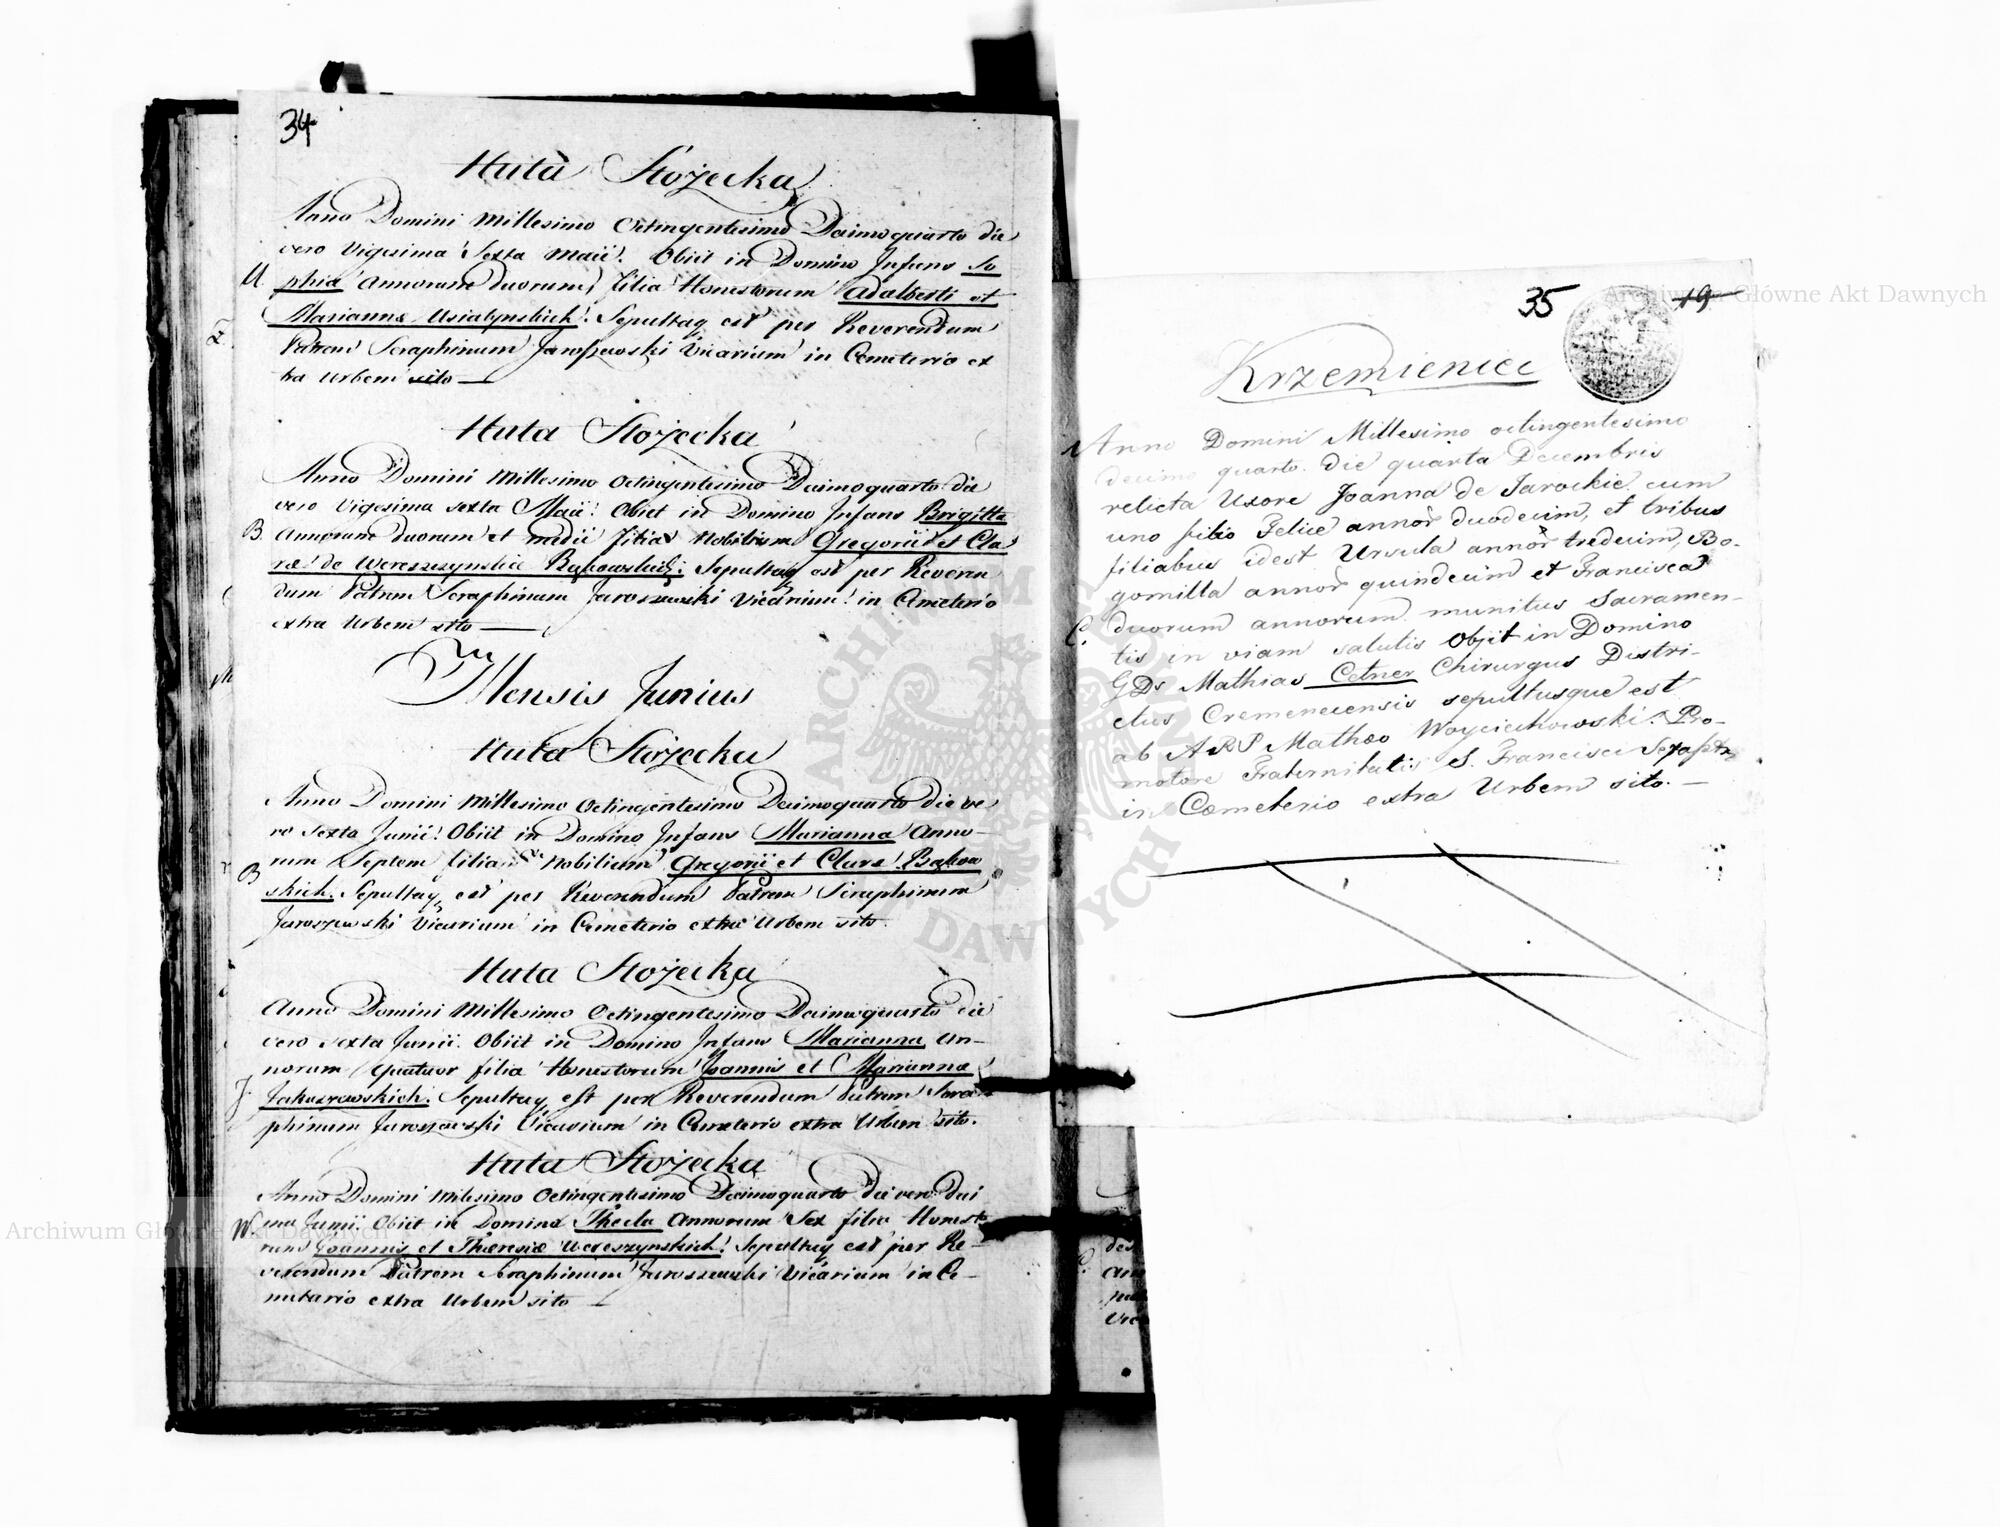 34
Huta Stożecka
Anno Domini Millesimo Octingentesimo Decimoquarto die
vero Vigesima Sexta Maii. Obiit in Domino Infans So
U. phia Annorum duorum, filia Honestorum Adalberti et
Mariannæ Usiatynskich. Sepultaq est per Reverendum
Patrem Seraphinum Jaroszewski Vicarium in Cemeterio ex
tra Urbem sito —
Huta Stożecka
Anno Domini Millesimo Octingentesimo Decimoquarto die
vero Vigesima sexta Maii. Obiit in Domino Infans Brigitta
B. Annorum duorum et medii filia Nobilium Gregorii et Cla
ræ de Wereszczynskie Bąkowskich. Sepultaq est per Reveren
dum Patrem Seraphinum Jaroszewski Vicarium in Cmeterio
extra Urbem sito —
Mensis Junius
Huta Stożecka
Anno Domini Millesimo Octingentesimo Decimoquarto die ve
ro Sexta Junii. Obiit in Domino Infans Marianna Anno-
rum Septem filia Nobilium Gregorii et Claræ Bąkow
B skich. Sepultaq est per Reverendum Patrem Seraphinum
Jaroszewski Vicarium in Cemeterio extra Urbem sito.
Huta Stożecka
Anno Domini Millesimo Octingentesimo Decimoquarto die
vero sexta Junii. Obiit in Domino Infans Marianna An-
norum Quatuor filia Honestorum Joannis et Mariannæ
J. Jakuszewskich. Sepultaq est per Reverendum Patrem Sera
phinum Jaroszewski Vicarium in Cemeterio extra Urbem sito.
Huta Stożecka
Anno Domini Milesimo Octingentesimo Decimoquarto die vero Deci
W. ma Junii. Obiit in Domino Thecla Annorum Sex filia Honesto
rum Joannis et Theresiæ Wereszynskich. Sepultaq est per Re-
verendum Patrem Seraphinum Jaroszewski Vicarium in Ce-
metario extra Urbem sito —
35 19
Krzemieniec
Anno Domini Millesimo octingentesimo
decimo quarto die quarta Decembris
relicta Uxore Joanna de Jarockie cum
uno filio Felice annor duodecim, et tribus
filiabus idest Ursula annor tredecim, Bo-
gomilla annor quindecim et Francisca
duorum annorum munitus Sacramen-
C. tis in viam salutis Objit in Domino
GDs Mathias Cetner Chirurgus Distri-
ctus Cremenecensis sepultusque est
ab ARP Matheo Woyciechowski Pro-
motore Fraternitatis S. Francisci
in Cœmeterio extra Urbem sito. —
Archiwum Główne Akt Dawnych
Archiwum Główne Akt Dawnych
ARCHIWUM GŁÓWNE AKT DAWNYCH